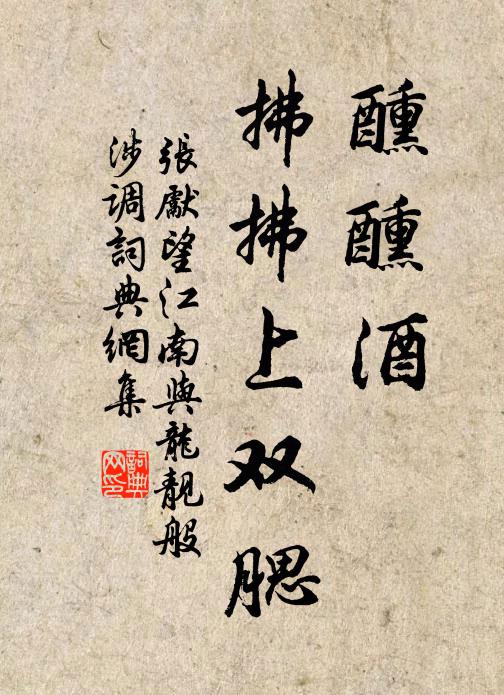 醺醺酒
拂拂上双腮
張獻望江南與龍靚般
涉调詞典網集
詞典网印